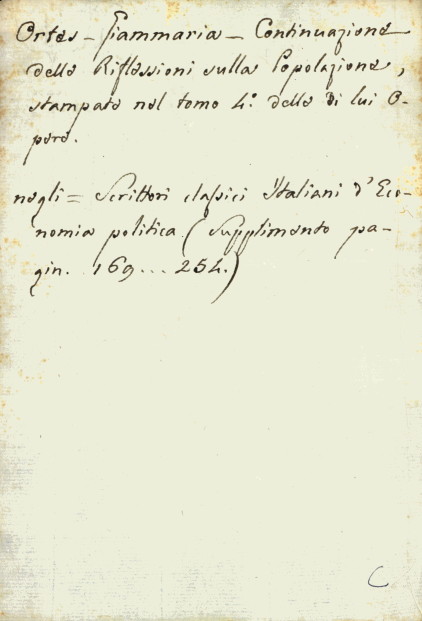 Ortes - Giammaria - Continuazione
delle Riflessioni sulla Popolazione,
stampate nel tomo 4.° delle di lui O-
pere.
negli = Scrittori classici Italiani d'Eco-
nomia politica (Supplimento pa-
gin. 169... 254.)
C